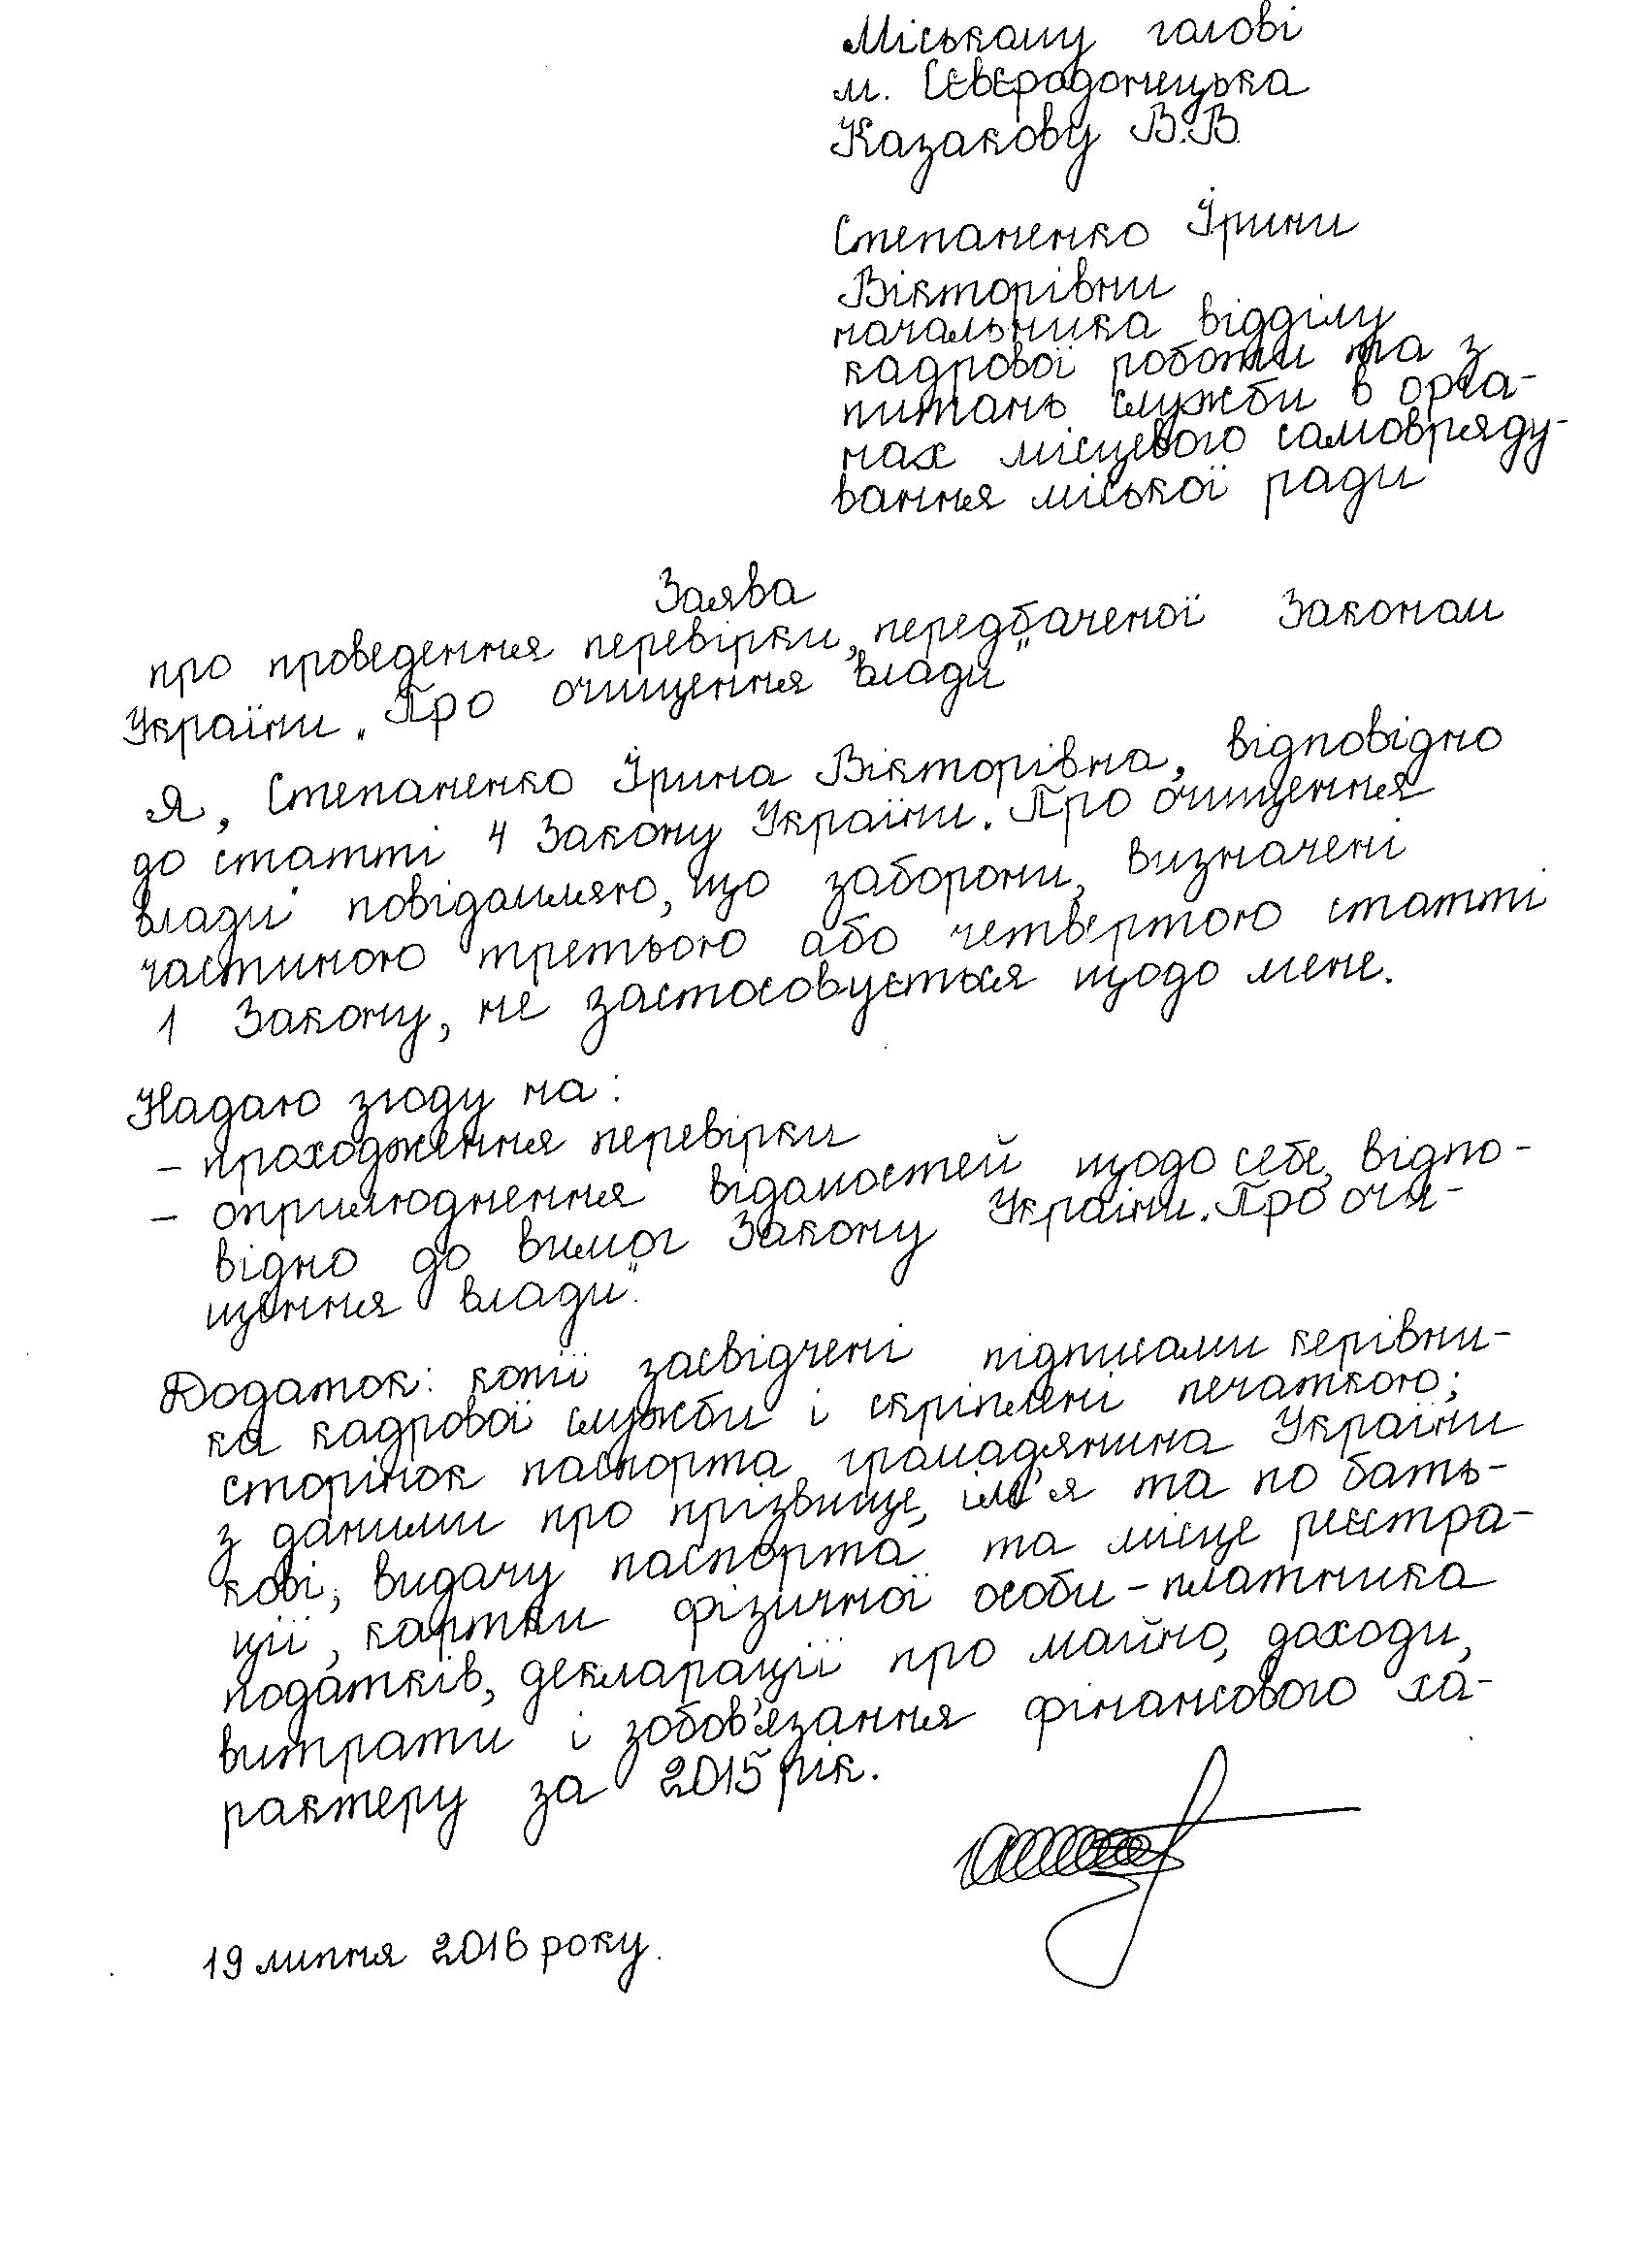 Міському голові
м. Сєвєродонецька
Казакову В.В.
Степаненко Ірини
Вікторівни
начальника відділу
кадрової роботи та з
питань служби в орга-
нах місцевого самовряду-
вання міської ради
Заява
про проведення перевірки, передбаченої Законом
України „Про очищення влади"
Я, Степаненко Ірина Вікторівна, відповідно
до статті 4 Закону України „Про очищення
влади" повідомляю, що заборони, визначені
частиною третьою або четвертою статті
1 Закону, не застосовується щодо мене.
Надаю згоду на:
- проходження перевірки
- оприлюднення відомостей щодо себе, відпо-
відно до вимог Закону України „Про очи-
щення влади".
Додаток: копії засвідчені підписами керівни-
ка кадрової служби і скріплені печаткою;
сторінок паспорта громадянина України
з даними про прізвище, ім'я та по бать-
кові, видачу паспорта, та місце реєстра-
ції, картки фізичної особи-платника
податків, декларації про майно, доходи,
витрати і зобов'язання фінансового ха-
рактеру за 2015 рік.
19 липня 2016 року.